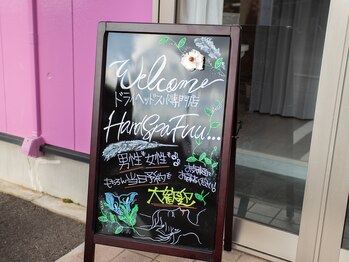 Welcome
ドライヘッドスパ専門店
HandSpaFuu...
男性 女性も
もちろん当日予約も
大歓迎